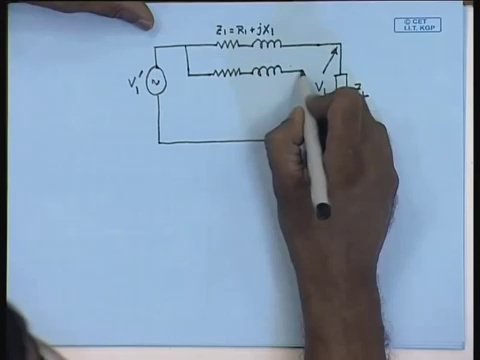 © CET
I.I.T. KGP
Z₁ = R₁ + jX₁
V₁'
~
V₁